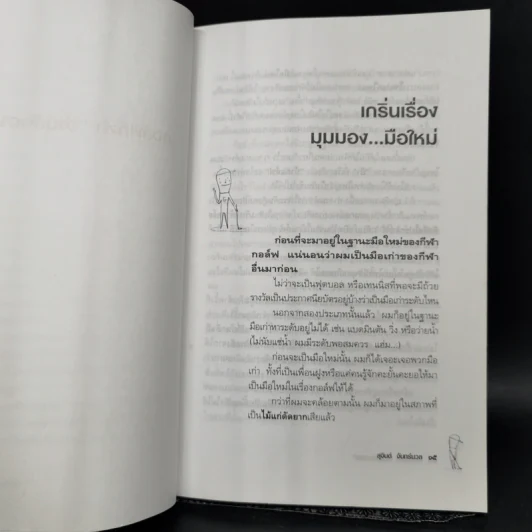 เกริ่นเรื่อง
มุมมอง...มือใหม่
ก่อนที่จะมาอยู่ในฐานะมือใหม่ของกีฬา
กอล์ฟ แน่นอนว่าผมเป็นมือเก่าของกีฬา
อื่นมาก่อน
ไม่ว่าจะเป็นฟุตบอล หรือเทนนิสที่พอจะมีถ้วย
รางวัลเป็นประกาศนียบัตรอยู่บ้างว่าเป็นมือเก่าระดับไหน
นอกจากสองประเภทนั้นแล้ว ผมก็อยู่ในฐานะ
มือเก่าหาระดับอยู่ไม่ได้ เช่น แบดมินตัน วิ่ง หรือว่ายน้ำ
(ไม่นับแช่น้ำ ผมมีระดับพอสมควร แฮ่ม...)
ก่อนจะเป็นมือใหม่นั้น ผมก็ได้เจอะเจอพวกมือ
เก่า ทั้งที่เป็นเพื่อนฝูงหรือแค่คนรู้จักคะยั้นคะยอให้มา
เป็นมือใหม่ในเรื่องกอล์ฟให้ได้
กว่าที่ผมจะคล้อยตามนั้น ผมก็มาอยู่ในสภาพที่
เป็นไม้แก่ดัดยากเสียแล้ว
๑๕